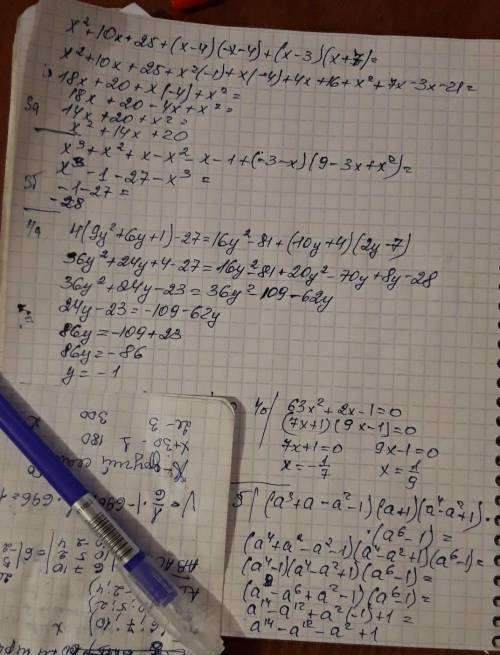 x² + 10x + 25 + (x-4)(-x-4) + (x-3)(x+7) =
x² + 10x + 25 + x²(-1) + x(-4) + 4x + 16 + x² + 7x - 3x - 21 =
18x + 20 + x(-4) + x² =
18x + 20 - 4x + x² =
14x + 20 + x² =
x² + 14x + 20
3a
x³ + x² + x - x² - x - 1 + (-3-x)(9-3x+x²) =
x³ - 1 - 27 - x³ =
3б
-1-27 =
-28
4(9y²+6y+1)-27 = 16y²-81+(10y+4)(2y-7)
36y²+24y+4-27 = 16y²-81+20y²-70y+8y-28
36y²+24y-23 = 36y²-109-62y
24y-23 = -109-62y
86y = -109+23
86y = -86
y = -1
4б 63x²+2x-1=0
(7x+1)(9x-1)=0
7x+1=0 9x-1=0
x=-1/7 x=1/9
5 (a³+a-a²-1)(a+1)(a⁴-a²+1)·
·(a⁶-1) =
(a⁴+a²-a²-1)(a⁴-a²+1)(a⁶-1) =
(a⁴-1)(a⁴-a²+1)(a⁶-1) =
(a⁸-a⁶+a²-1)(a⁶-1) =
a¹⁴-a¹²+a²(-1)+1 =
a¹⁴-a¹²-a²+1
300
180